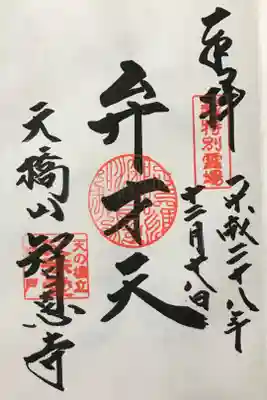 奉拝
特別霊場
平成二十八年
十二月十八日
弁才天
天橋山智恩寺
天の橋立